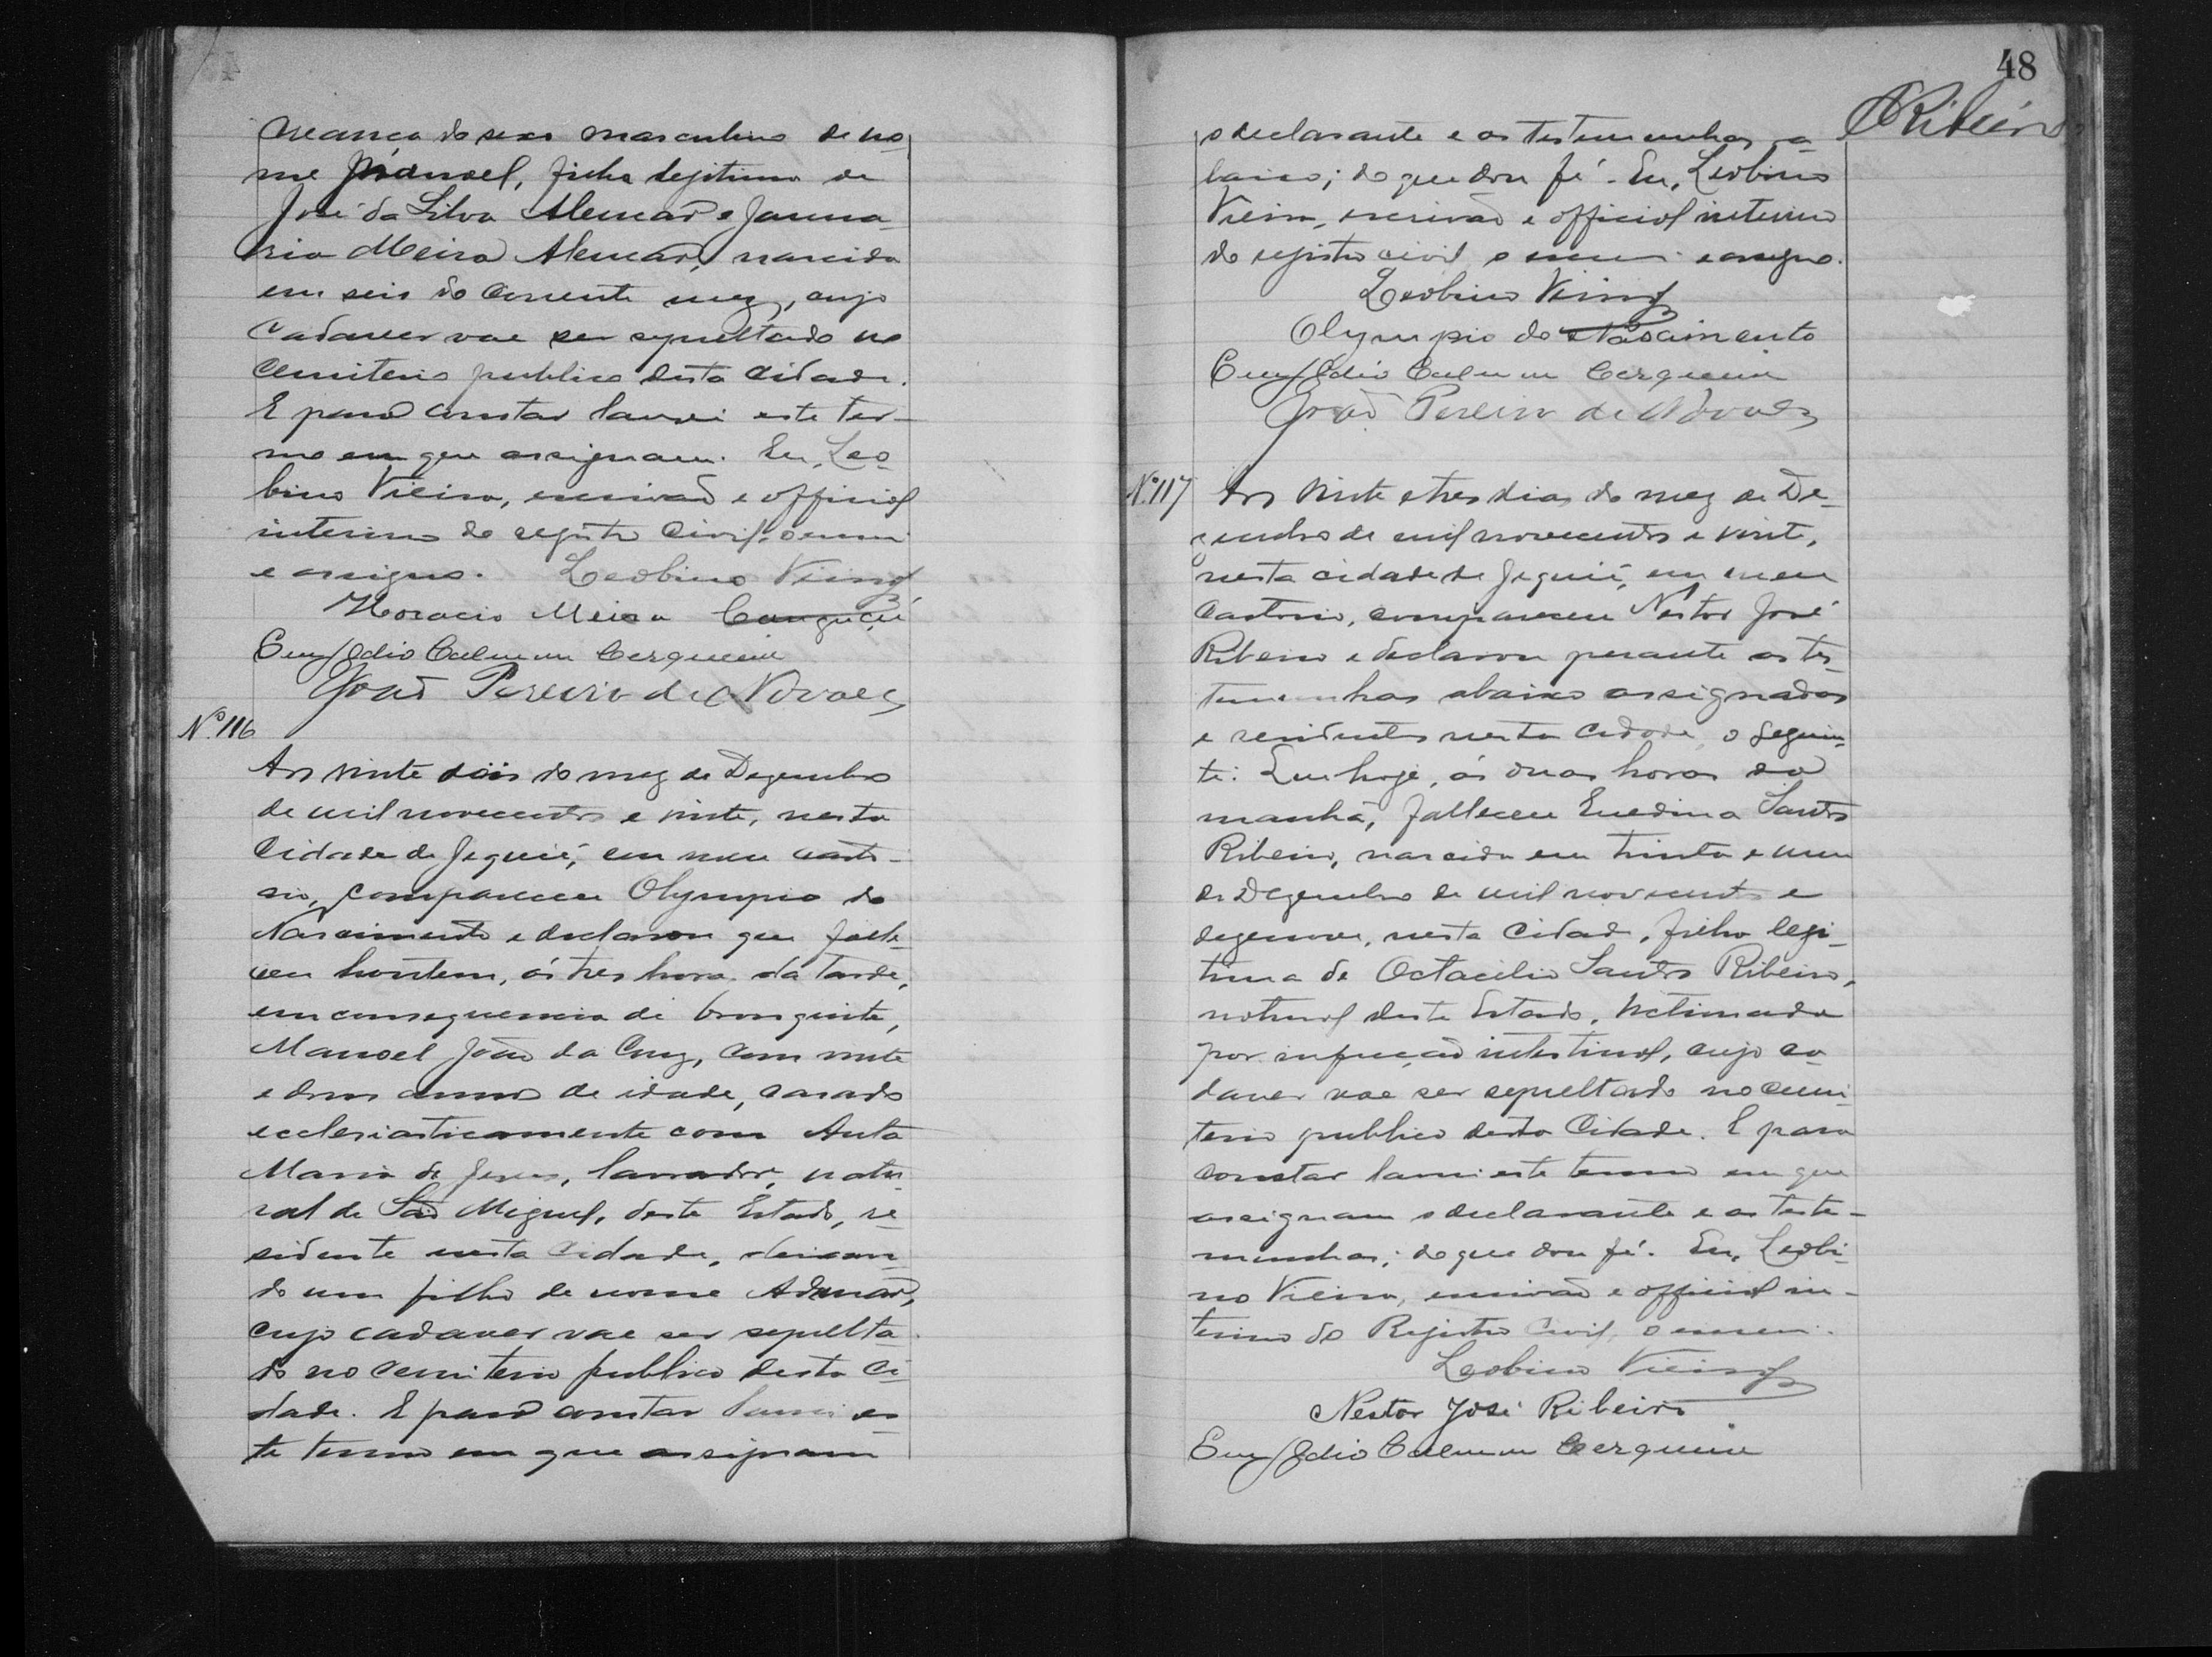 creança do sexo masculino de no-
me Manoel, filho legitimo de
José da Silva Alencar e Janua-
ria Meira Alencar, nascido
em seis do corrente mez, cujo
cadaver vae ser sepultado no
cemiterio publico desta cidade.
E para constar lavrei este ter-
mo em que assignam. Eu, Leo-
bino Vieira, escrivão e official
interino do registro civil, o escrevi
e assigno. Leobino Vieira
Horacio Meira
Cerqueira
João Pereira de Novaes
Nº 116
Aos vinte dois do mez de Dezembro
de mil novecentos e vinte, nesta
Cidade de Jequié, em meu carto-
rio, compareceu Olympio do
Nascimento e declarou que falle-
ceu hontem, ás tres horas da tarde,
em consequencia de bronquite,
Manoel João da Cruz, com vinte
e dous annos de idade, casado
ecclesiasticamente com Anta
Maria de Jesus, lavrador, natu-
ral de São Miguel, deste Estado, re-
sidente nesta Cidade, deixan-
do um filho de nome
cujo cadaver vae ser sepulta-
do no cemiterio publico desta Ci-
dade. E para constar lavrei es-
te termo em que assignam
48
Ribeiro
o declarante e as testemunhas a-
baixo; do que dou fé. Eu, Leobino
Vieira, escrivão e official interino
do registro civil, o escrevi e assigno.
Leobino Vieira
Olympio do Nascimento
Cerqueira
João Pereira de Novaes
Nº 117 Aos vinte e tres dias do mez de De-
zembro de mil novecentos e vinte,
nesta cidade de Jequié, em meu
Cartorio, compareceu Nestor José
Ribeiro e declarou perante as tes-
temunhas abaixo assignadas
e residentes nesta cidade, o seguin-
te: Que hoje, ás duas horas da
manhã, falleceu Enedina Santos
Ribeiro, nascida em trinta e um
de Dezembro de mil novecentos e
dezenove, nesta Cidade, filha legi-
tima de Octacilio Santos Ribeiro,
natural deste Estado, victimada
por infecção intestinal, cujo ca-
daver vae ser sepultado no cemi-
terio publico desta Cidade. E para
constar lavrei este termo em que
assignam o declarante e as teste-
munhas; do que dou fé. Eu, Leobi-
no Vieira, escrivão e official in-
terino do Registro Civil, o escrevi.
Leobino Vieira
Nestor José Ribeiro
Cerqueira